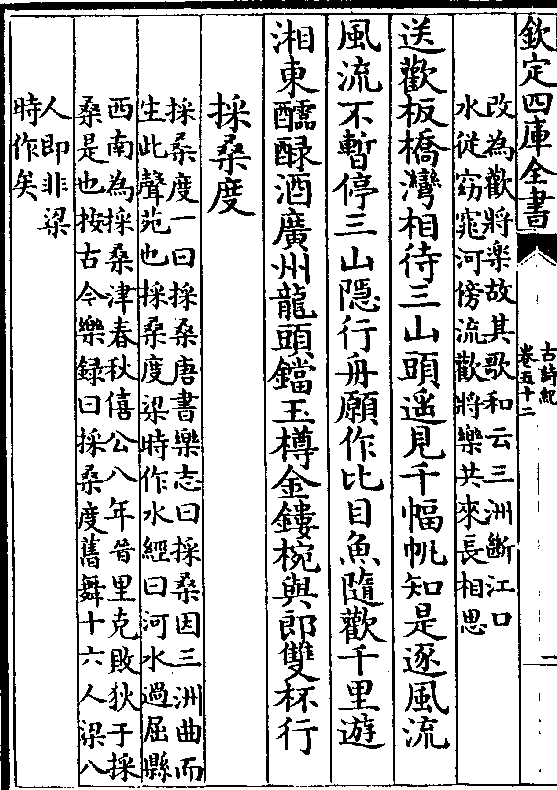 欽定四庫全書
古詩紀
卷五十二
改為歡將樂故其歌和云三洲斷江口
水從窈窕河傍流歡將樂共來長相思
送歡板橋灣相待三山頭遙見千幅帆知是逐風流
風流不暫停三山隱行舟願作比目魚隨歡千里遊
湘東醽醁酒廣州龍頭鐺玉樽金鏤椀與郎雙杯行
採桑度
採桑度一曰採桑唐書樂志曰採桑因三洲曲而
生此聲苑也採桑度梁時作水經曰河水過屈縣
西南為採桑津春秋僖公八年晉里克敗狄于採
桑是也按古今樂録曰採桑度舊舞十六人梁八
人即非梁
時作矣